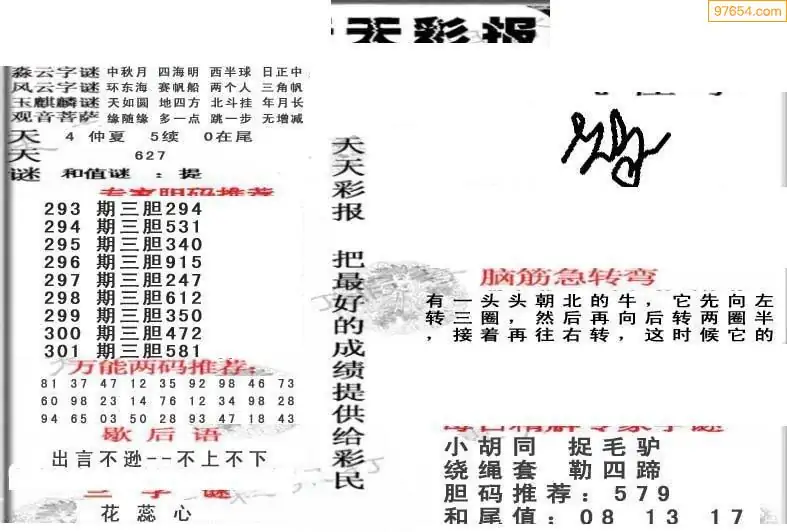 97654.com
天天彩报
淼云字谜 中秋月 四海明 西半球 日正中
风云字谜 环东海 赛帆船 两个人 三角帆
玉麒麟谜 天如圆 地四方 北斗挂 年月长
观音菩萨 缘随缘 多一点 跳一步 无增减
天 4 仲夏 5续 0在尾
天 627
谜 和值谜 : 提
专家胆码推荐
293 期三胆294
294 期三胆531
295 期三胆340
296 期三胆915
297 期三胆247
298 期三胆612
299 期三胆350
300 期三胆472
301 期三胆581
万能两码推荐:
81 37 47 12 35 92 98 46 73
60 98 23 14 76 12 34 98 28
94 65 03 50 28 93 47 18 43
歇后语
出言不逊--不上不下
三字谜
花蕊心
天天彩报 把最好的成绩提供给彩民
脑筋急转弯
有一头头朝北的牛，它先向左
转三圈，然后再向后转两圈半
，接着再往右转，这时候它的
每日精解专家字谜
小胡同 捉毛驴
绕绳套 勒四蹄
胆码推荐：579
和尾值：08 13 17